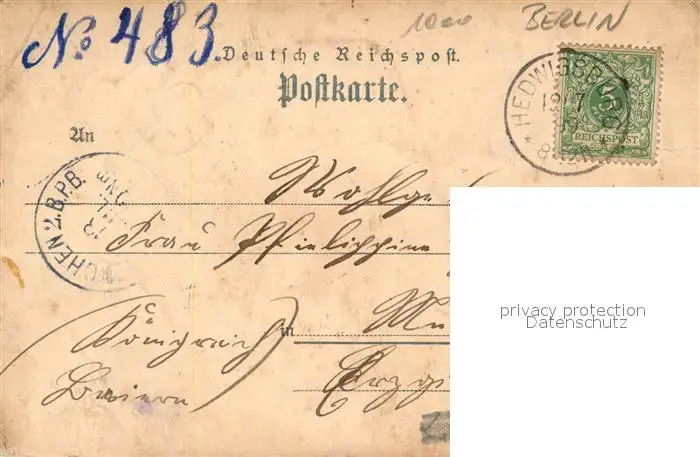 No. 483.
1000
BERLIN
Deutsche Reichspost.
Postkarte.
HEDWIGSB
5
REICHSPOST
An
CHEN 2. B.P.B.
Wohlge
Frau Philippine
in Mü
(Königreich
Baiern)
privacy protection
Datenschutz